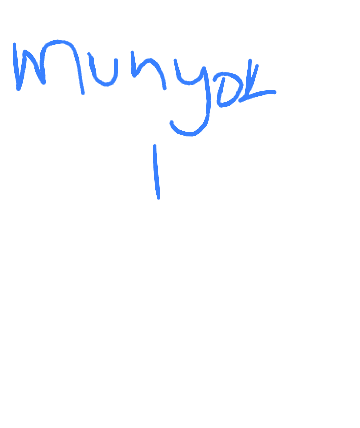 Munyok
1